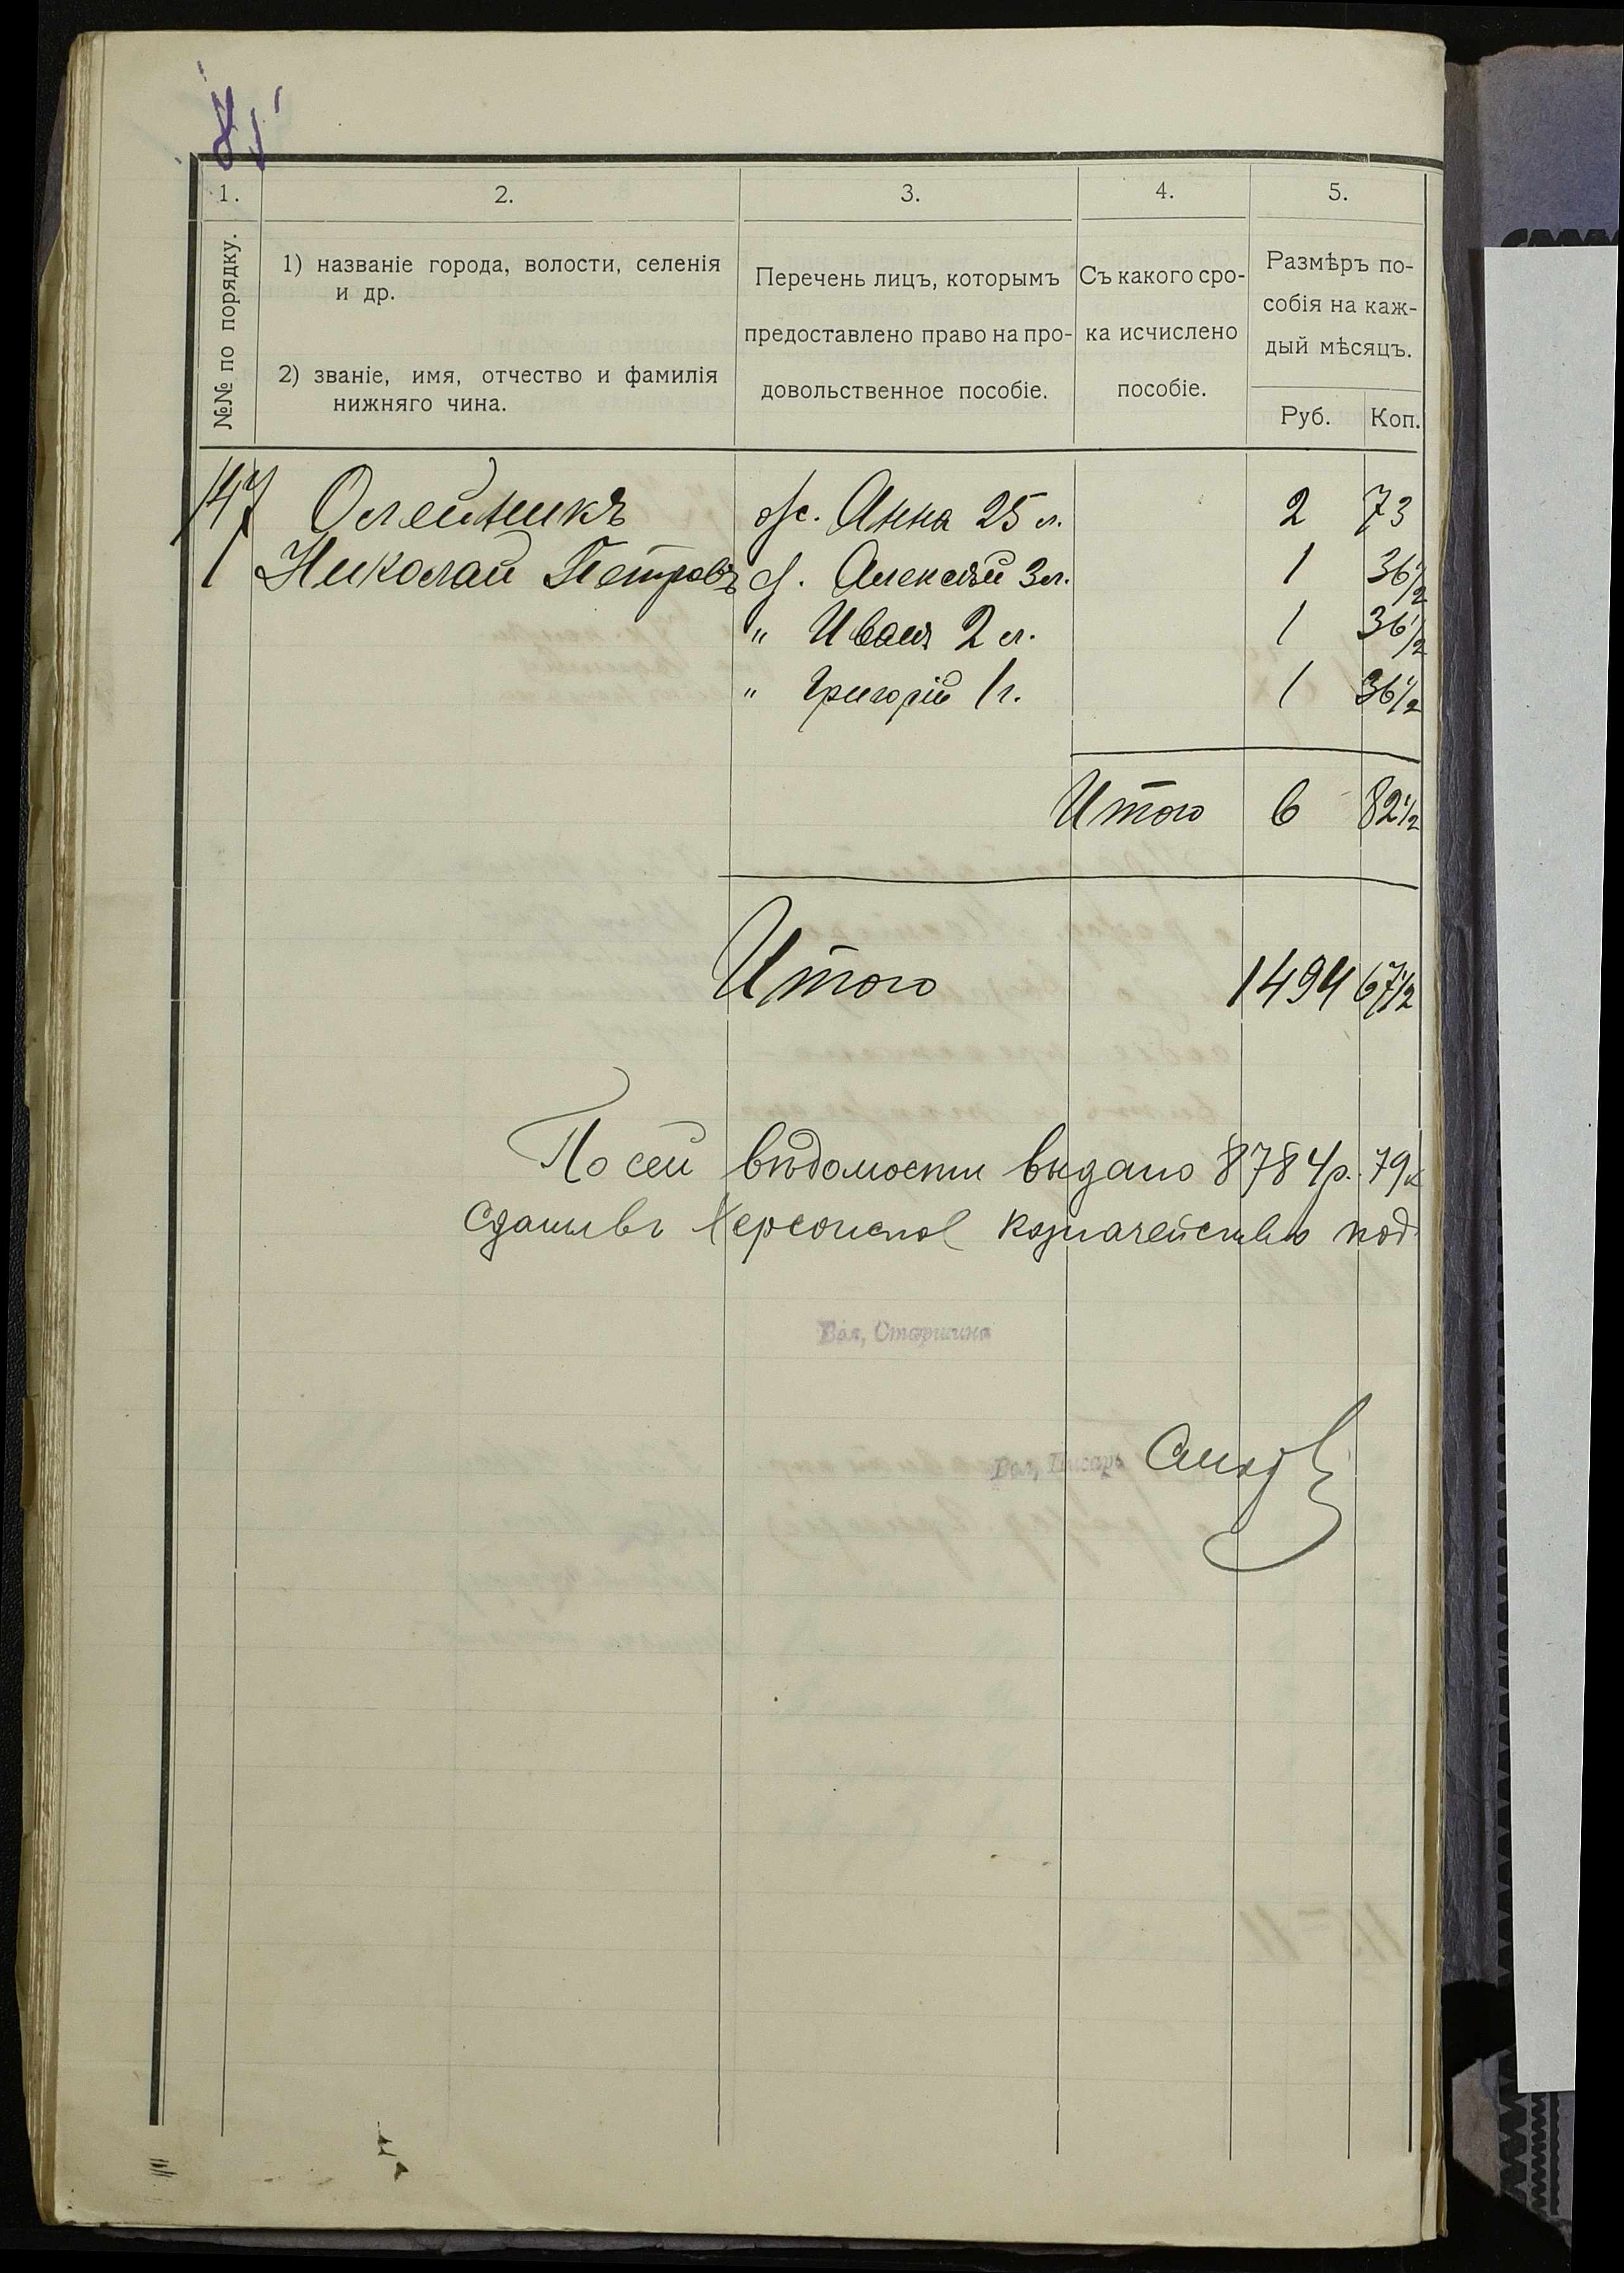 1. 2. 3. 4. 5.
№№ по порядку.
1) названіе города, волости, селенія
и др.
2) званіе, имя, отчество и фамилія
нижняго чина.
Перечень лицъ, которымъ
предоставлено право на про-
довольственное пособіе.
Съ какого сро-
ка исчислено
пособіе.
Размѣръ по-
собія на каж-
дый мѣсяцъ.
Руб. Коп.
147 Олейникъ ж. Анна 25 л. 2 73
1 Николай Петровъ с. Алексѣй 3 л. 1 36 1/2
" Иванъ 2 л. 1 36 1/2
" Григорій 1 г. 1 36 1/2
Итого 6 82 1/2
Итого 1494 67 1/2
По сей вѣдомости выдано 8784 р. 79 к
Херсонское казначейство под
Вол, Старшина
Вол, Писарь